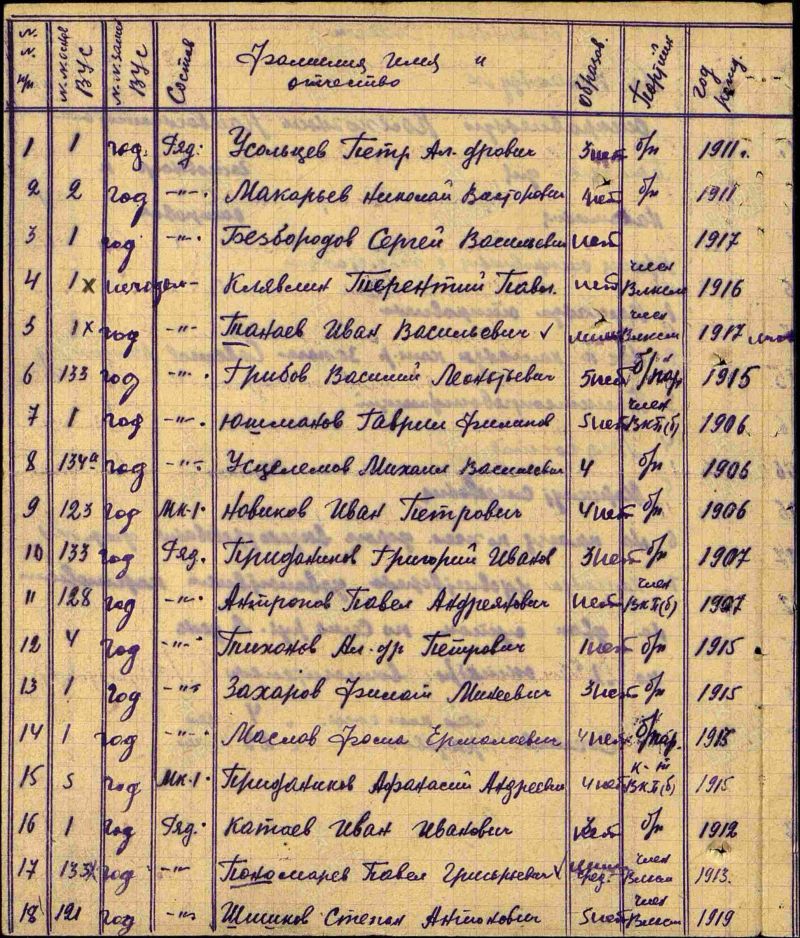 N. N. п/п | ВУС | ВУС | Состав | Фамилия имя и отчество | Образов. | Партийн | год
1 | 1 | год. | Ряд. | Усольцев Петр Ал-дрович | 3 | б/п | 1911 г.
2 | 2 | год | -"- | Макарьев Николай Викторович | 4 | б/п | 1911
3 | 1 | год | -"- | Безбородов Сергей Васильевич | | 1917
4 | 1 х | -"- | Клявлин Терентий Павл. | член Влксм | 1916
5 | 1 х | год | -"- | Танаев Иван Васильевич ✓ | член Влксм | 1917
6 | 133 | год | -"- | Грибов Василий Леонтьевич | 5 | б/пар. | 1915
7 | 1 | год | -"- | Юшманов Гаврил | 5 | член Вкп(б) | 1906
8 | 134а | год | -"- | Усцелемов Михаил Васильевич | 4 | б/п | 1906
9 | 123 | год | Мк-1 | Новиков Иван Петрович | 4 | б/п | 1906
10 | 133 | год | Ряд. | Приданников Григорий Иванов | 3 | б/п | 1907
11 | 128 | год | -"- | Антропов Павел Андреянович | член Вкп(б) | 1907
12 | 4 | год | -"- | Тихонов Ал-др Петрович | б/п | 1915
13 | 1 | год | -"- | Захаров Филат Михеевич | 3 | б/п | 1915
14 | 1 | год | -"- | Маслов Фома Ермолаевич | 4 | б/пар. | 1915
15 | 5 | год | Мк-1 | Приданников Афанасий Андреевич | 4 | к-т Вкп(б) | 1915
16 | 1 | год | Ряд. | Катаев Иван Иванович | б/п | 1912
17 | 133х | год | -"- | Пономарев Павел Григорьевич ✓ | член | 1913.
18 | 121 | год | -"- | Шишков Степан Антонович | 5 | член | 1919